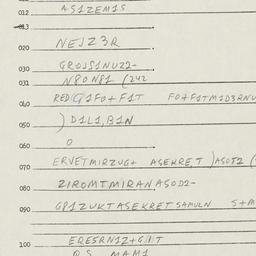 012 AS1ZEM1S
013
020 NEJZ3R
030 GROJS1NUZ2-
031 N8ON81 (242
040 RED(G1F0+F1T F0+F1TM1D3RNU
050 )D1L1,B1N
060 O
070 ERVETMIRZUG+ ASEKRE,T )ASOT2 (
080 21ROMTMIRANASOD2-
090 GP1ZUKTASEKRETSAMULN S+M
100 ERESRN1Z+G1IT